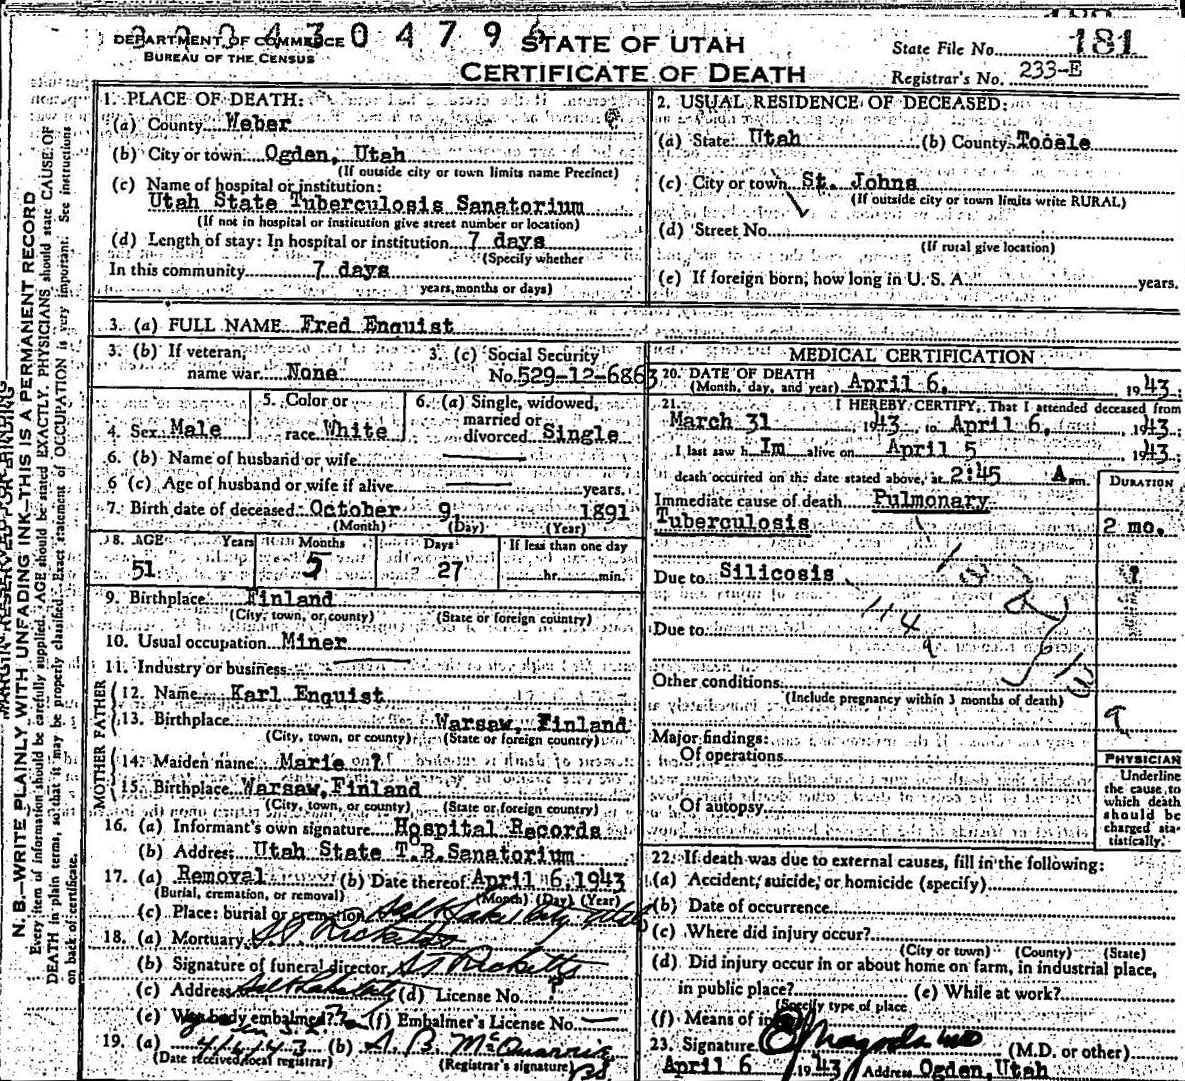 0 0 4 3 0 4 7 9 6
DEPARTMENT OF COMMERCE
BUREAU OF THE CENSUS
STATE OF UTAH
CERTIFICATE OF DEATH
State File No. 181
Registrar's No. 233-E
MARGIN RESERVED FOR BINDING
N. B.—WRITE PLAINLY WITH UNFADING INK—THIS IS A PERMANENT RECORD
Every item of information should be carefully supplied. AGE should be stated EXACTLY. PHYSICIANS should state CAUSE OF
DEATH in plain terms, so that it may be properly classified. Exact statement of OCCUPATION is very important. See instructions
on back of certificate.
1. PLACE OF DEATH:
(a) County Weber
(b) City or town Ogden, Utah
(If outside city or town limits name Precinct)
(c) Name of hospital or institution:
Utah State Tuberculosis Sanatorium
(If not in hospital or institution give street number or location)
(d) Length of stay: In hospital or institution 7 days
(Specify whether
In this community 7 days
years, months or days)
2. USUAL RESIDENCE OF DECEASED:
(a) State Utah (b) County Tooele
(c) City or town St. Johns
(If outside city or town limits write RURAL)
(d) Street No.
(If rural give location)
(e) If foreign born, how long in U. S. A. years.
3. (a) FULL NAME Fred Enquist
3. (b) If veteran, name war None
3. (c) Social Security No. 529-12-6863
4. Sex Male
5. Color or race White
6. (a) Single, widowed, married or divorced Single
6. (b) Name of husband or wife
6 (c) Age of husband or wife if alive years.
7. Birth date of deceased October 9, 1891
(Month) (Day) (Year)
8. AGE Years Months Days If less than one day
51 5 27 hr. min.
9. Birthplace Finland
(City, town, or county) (State or foreign country)
10. Usual occupation Miner
11. Industry or business
FATHER
12. Name Karl Enquist
13. Birthplace Warsaw, Finland
(City, town, or county) (State or foreign country)
MOTHER
14. Maiden name Marie ?
15. Birthplace Warsaw, Finland
(City, town, or county) (State or foreign country)
16. (a) Informant's own signature Hospital Records
(b) Address Utah State T.B. Sanatorium
17. (a) Removal (b) Date thereof April 6, 1943
(Burial, cremation, or removal) (Month) (Day) (Year)
(c) Place: burial or cremation Salt Lake City Utah
18. (a) Mortuary S T Ricketts
(b) Signature of funeral director S T Ricketts
(c) Address Salt Lake City (d) License No. ?
(e) Was body embalmed? (f) Embalmer's License No.
19. (a) 4-6-43 (b) A. B. McQuarrie
(Date received local registrar) (Registrar's signature)
MEDICAL CERTIFICATION
20. DATE OF DEATH
(Month, day, and year) April 6, 1943
21. I HEREBY CERTIFY, That I attended deceased from
March 31, 1943, to April 6, 1943;
I last saw h Im alive on April 5 1943;
death occurred on the date stated above, at 2:45 A m.
DURATION
Immediate cause of death Pulmonary
Tuberculosis 2 mo.
Due to Silicosis ?
Due to
Other conditions
(Include pregnancy within 3 months of death)
Major findings:
Of operations
Of autopsy
PHYSICIAN
Underline
the cause to
which death
should be
charged sta-
tistically.
22. If death was due to external causes, fill in the following:
(a) Accident, suicide, or homicide (specify)
(b) Date of occurrence
(c) Where did injury occur?
(City or town) (County) (State)
(d) Did injury occur in or about home on farm, in industrial place,
in public place? (e) While at work?
(Specify type of place
(f) Means of
23. Signature (M.D. or other)
April 6 1943 Address Ogden, Utah